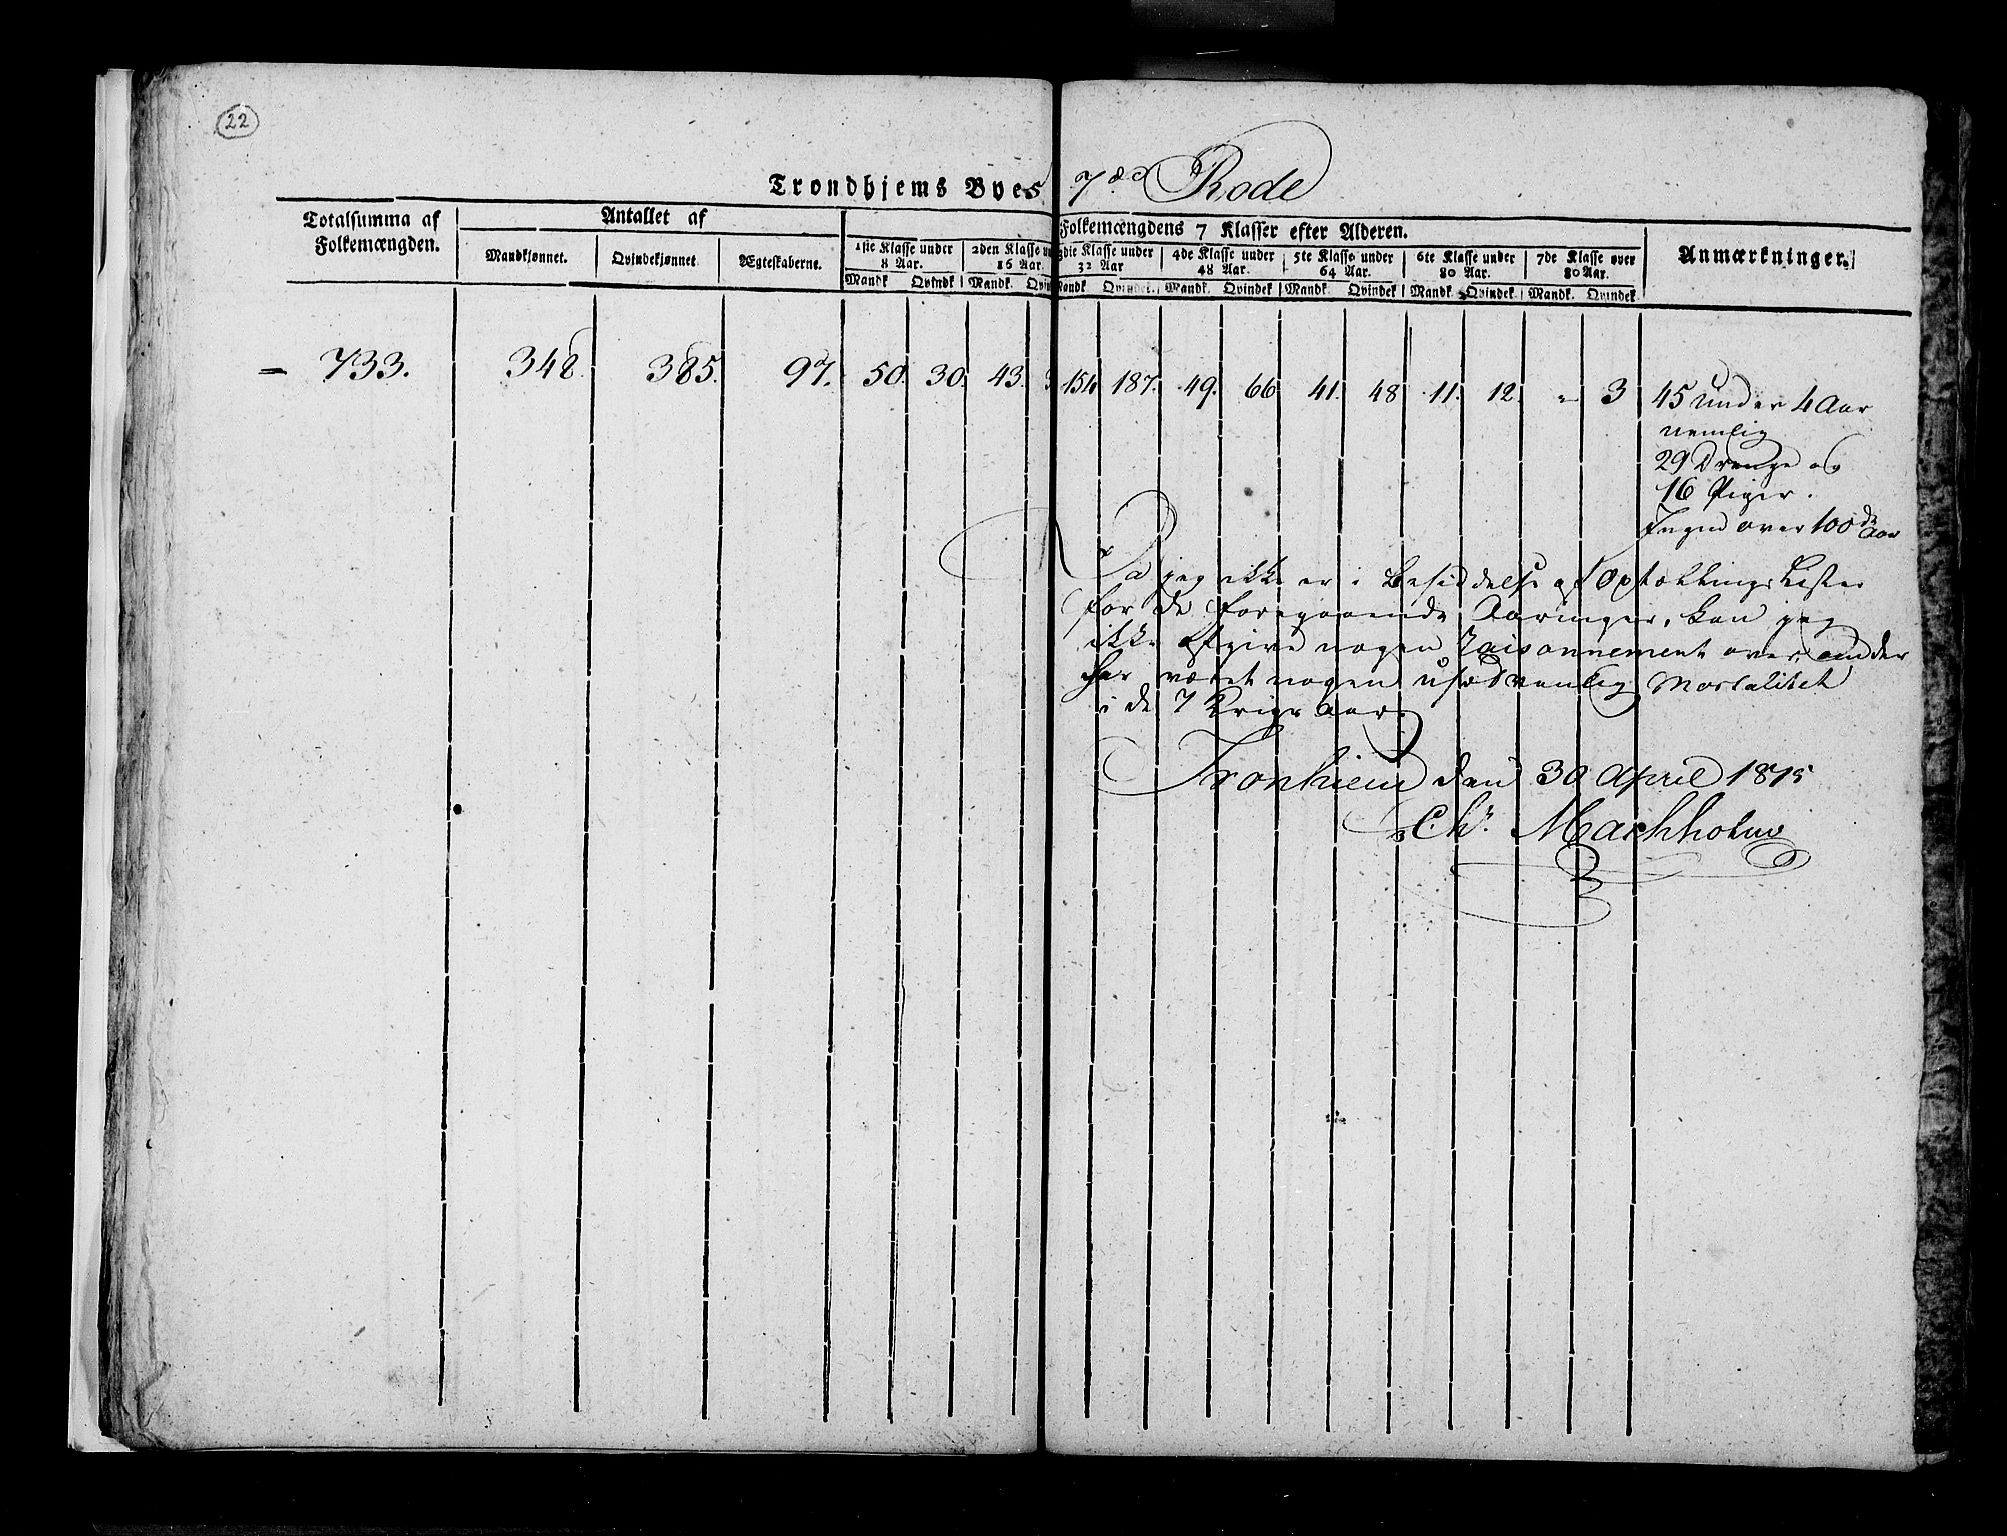 22
Trondhjems Byes 7de Rode
Totalsumma af Folkemængden.
Antallet af
Mandkjønnet. Qvindekjønnet Ægteskaberne.
Folkemængdens 7 Klasser efter Alderen.
1ste Klasse under 8 Aar.
2den Klasse un 16 Aar.
3die Klasse under 32 Aar
4de Klasse under 48 Aar.
5te Klasse under 64 Aar.
6te Klasse under 80 Aar.
7de Klasse over 80 Aar.
Anmærkninger.
Mandk Qvindk Mandk. Qvin Mandk. Qvindek. Mandk. Qvindek Mandk. Qvindek. Mandk Qvindek Mandk. Qvindek
= 733. 348. 385. 97. 50. 30. 43. 3 154 187. 49. 66 41. 48 11. 12. " 3
45 under 4 Aar
nemlig
29 Drenge og
16 Piger.
Ingen over 100de Aar
Da jeg ikke er i Besiddelse af Optællings Lister
for de foregaaende Aaringer, kan jeg
ikke afgive nogen Raisonnement over, om der
har været nogen usædvanlig Mortalitet
i de 7 Krigs Aar.
Tronhiem den 30 April 1815
Chr. Machholm